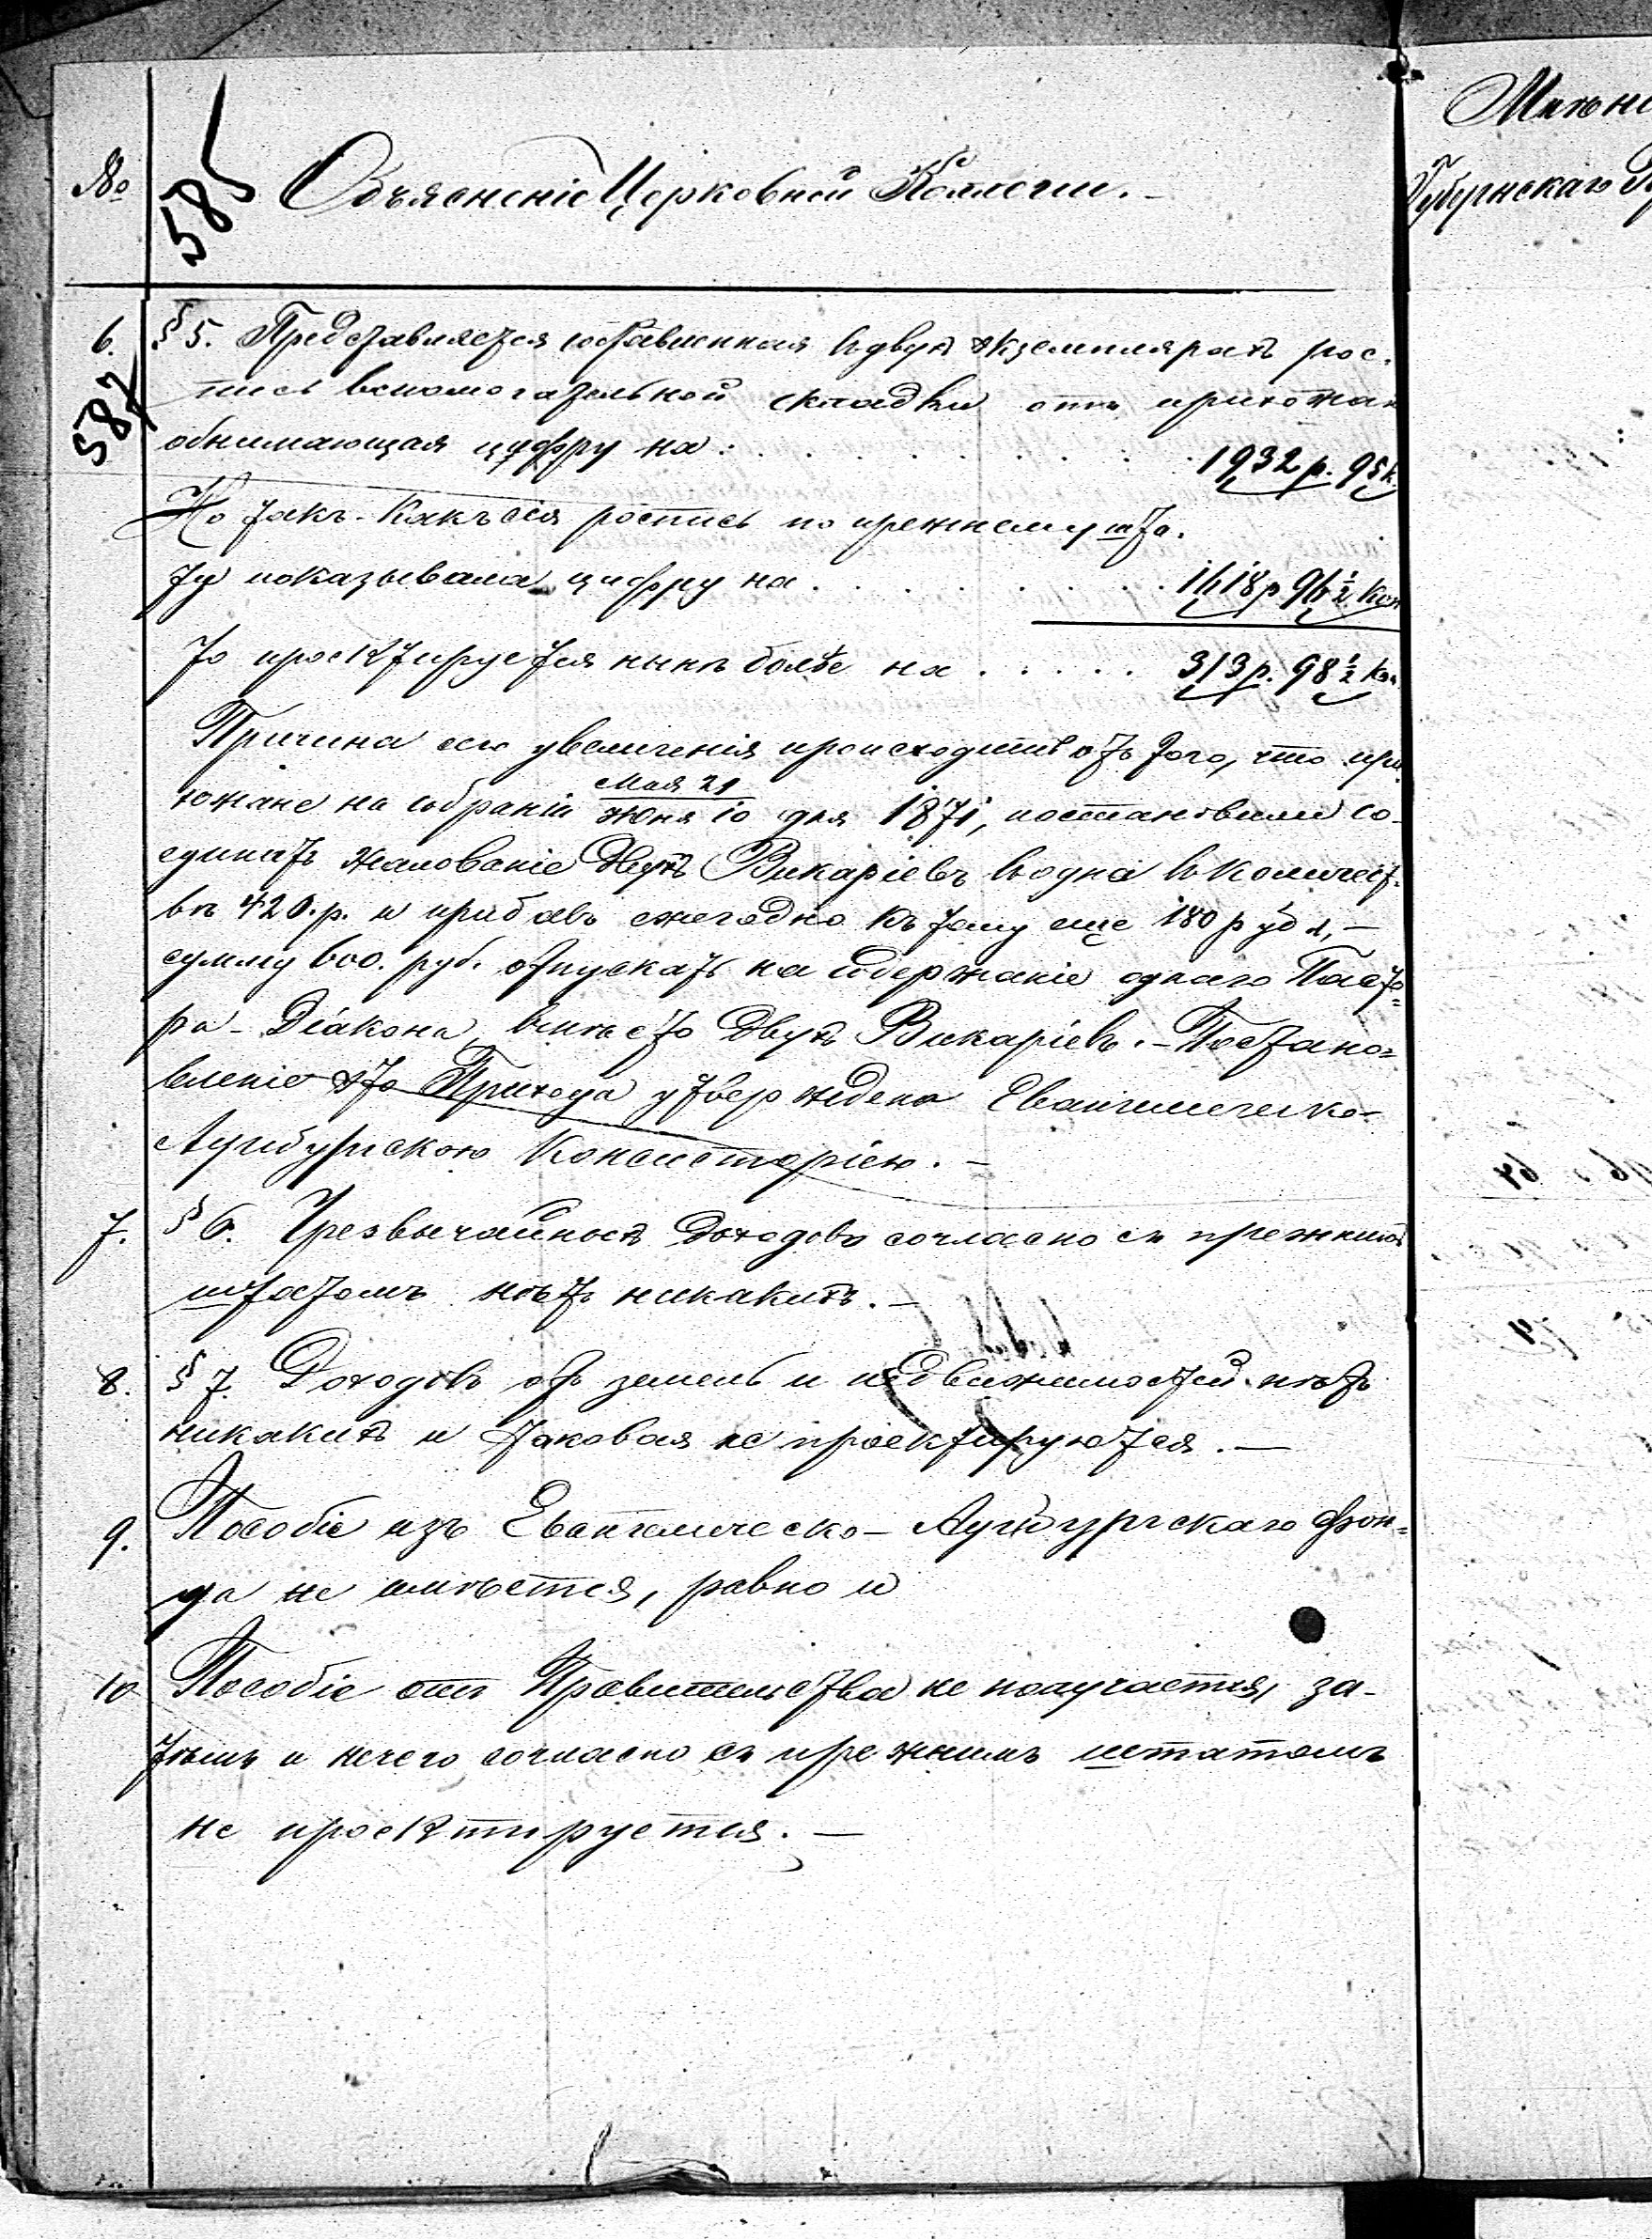 № 585 Объясненіе Церковной Коллегіи. —
6. § 5. Представляется составленная въ двухъ экземплярахъ рос-
587 пись вспомогательной складки отъ прихожан
обнимающая цифру на: . . . . . . . . 1932 р. 95 к.
Но такъ-какъ сія роспись по прежнему шта-
ту показывала цифру на . . . . . . . . 1618 р. 96 ½ коп
то проектируется нынѣ болѣе на . . . . . 313 р. 98 ½ коп.
Причина сего увеличенія происходитъ отъ того, что при
хожане на собраніи Мая 29 / Іюня 10 дня 1871, постановили со-
единить жалованіе двухъ Викаріевъ въ одна въ количест-
вѣ 420. р. и прибавъ ежегодно къ тому еще 180 рубл, —
сумму 600. руб. отпускать на содержаніе однаго Пасто-
ра-Діакона, вмѣсто двухъ Викаріевъ. — Постано-
вленіе это Прихода утверждена Евангелическо-
Аугсбургскою Консисторіею. —
7. § 6. Чрезвычайныхъ доходовъ согласно съ прежнимъ
штатомъ нѣтъ никакихъ. —
8. § 7. Доходовъ отъ земель и недвижимостей нѣтъ
никакихъ и таковая не проектируются. —
9. Пособіе изъ Евангелическо-Аугсбургскаго фон-
да не имѣется, равно и
10 Пособіе отъ Правительства не получается, за-
тѣмъ и нечего согласно съ прежнимъ штатомъ
не проектируется. —
Мнѣні
Губернскаго